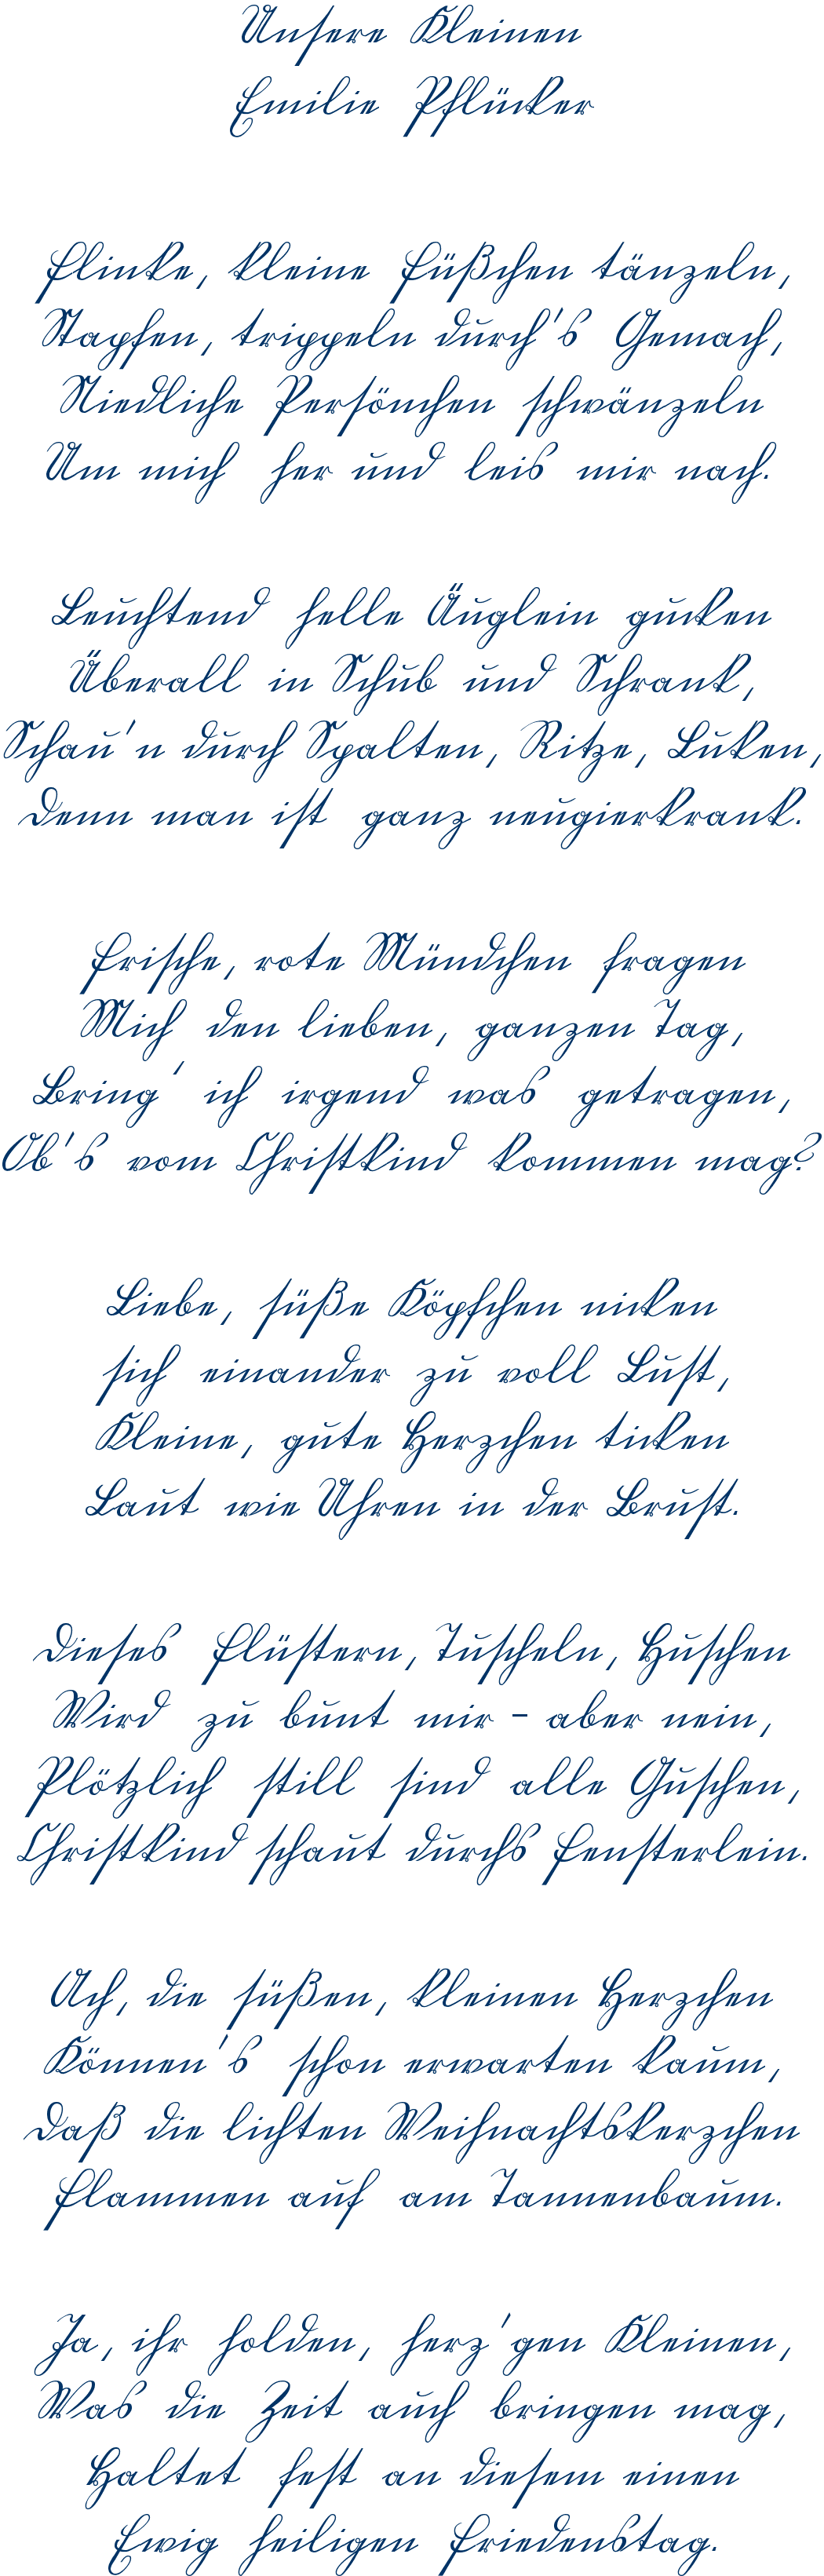 Unsere Kleinen
Emilie Pflücker
Flinke, kleine Füßchen tänzeln,
Stapfen, trippeln durch's Gemach,
Niedliche Persönchen schwänzeln
Um mich her und leis mir nach.
Leuchtend helle Äuglein gucken
Überall in Schub und Schrank,
Schau'n durch Spalten, Ritze, Luken,
Denn man ist ganz neugierkrank.
Frische, rote Mündchen fragen
Mich den lieben, ganzen Tag,
Bring' ich irgend was getragen,
Ob's vom Christkind kommen mag?
Liebe, süße Köpfchen nicken
sich einander zu voll Lust,
Kleine, gute Herzchen ticken
Laut wie Uhren in der Brust.
Dieses Flüstern, Tuscheln, Huschen
Wird zu bunt mir - aber nein,
Plötzlich still sind alle Guschen,
Christkind schaut durchs Fensterlein.
Ach, die süßen, kleinen Herzchen
Können's schon erwarten kaum,
Daß die lichten Weihnachtskerzchen
Flammen auf am Tannenbaum.
Ja, ihr holden, herz'gen Kleinen,
Was die Zeit auch bringen mag,
Haltet fest an diesem einen
Ewig heiligen Friedenstag.